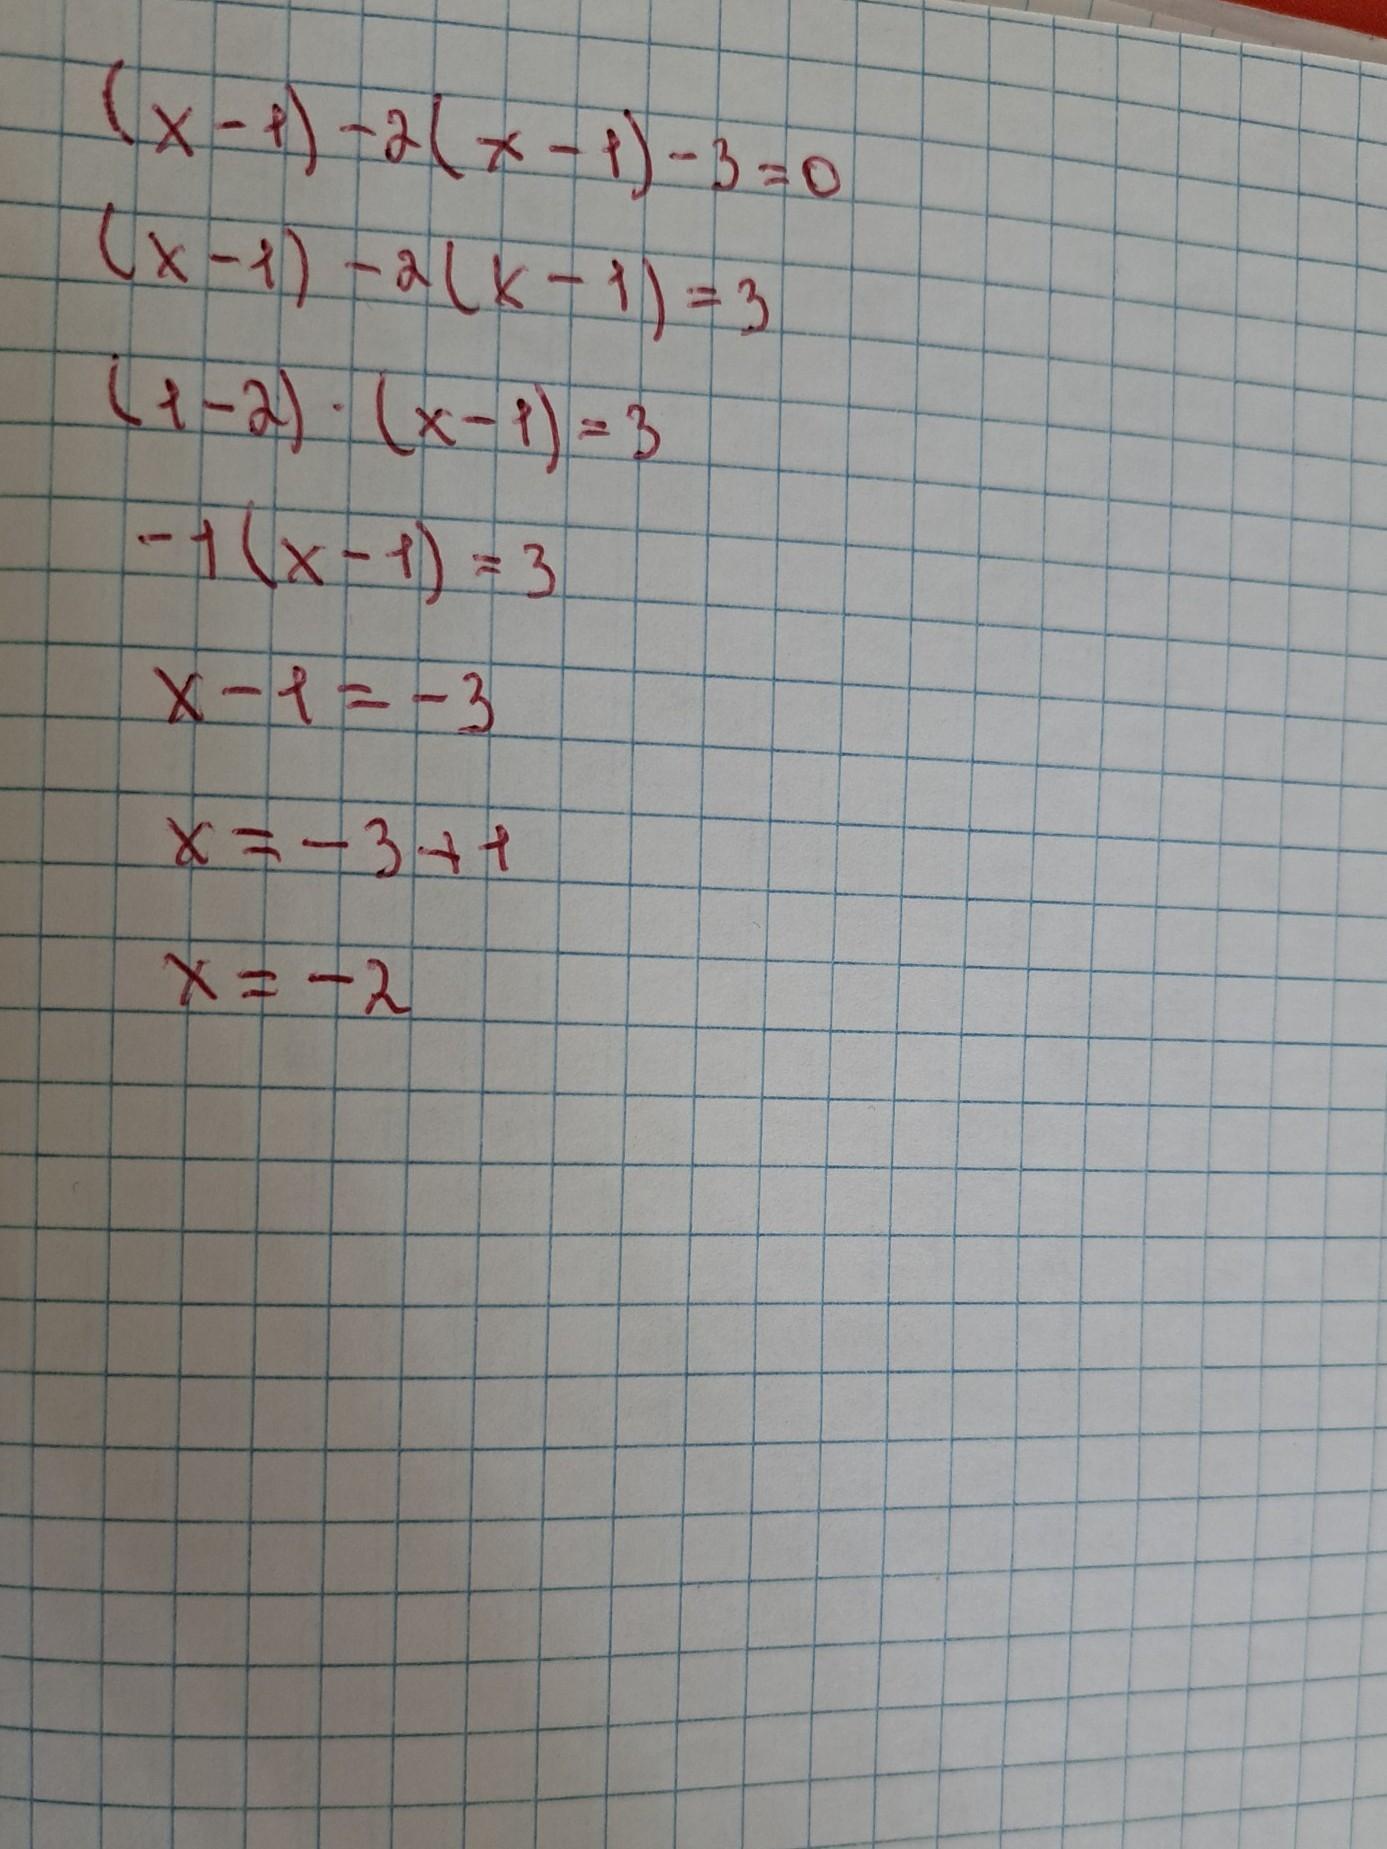 (x-1)-2(x-1)-3=0
(x-1)-2(x-1)=3
(1-2)·(x-1)=3
-1(x-1)=3
x-1=-3
x=-3+1
x=-2